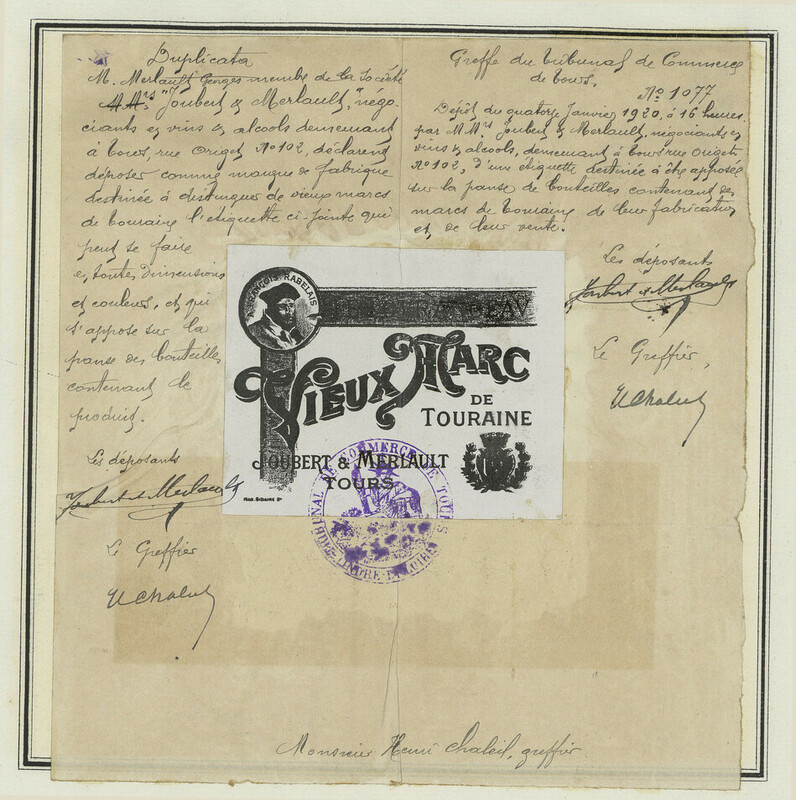 Duplicata
M. Merlault Georges membre de la Société
"Joubert & Merlault," négo-
ciants en vins & alcools demeurant
à Tours, rue Origet N° 102, déclarent
déposer comme marque de fabrique
destinée à distinguer de vieux marcs
de Touraine l'étiquette ci-jointe qui
peut se faire
en toutes dimensions
et couleurs, et qui
s'appose sur la
panse des bouteilles
contenant le
produit.
Les déposants
Joubert & Merlault
Le Greffier
H Chaleil
Greffe du Tribunal de Commerce
de Tours.
N° 1077
Dépôt du quatorze Janvier 1920, à 16 heures
par MM. Joubert & Merlault, négociants en
vins & alcools, demeurant à Tours rue Origet
N° 102, d'une étiquette destinée à être apposée
sur la panse de bouteilles contenant des
marcs de Touraine de leur fabrication
et de leur vente.
Les déposants
Joubert & Merlault
Le Greffier,
H Chaleil
FRANÇOIS RABELAIS
VIEUX MARC
DE
TOURAINE
JOUBERT & MERLAULT
TOURS
TRIBUNAL DE COMMERCE DE TOURS
INDRE-ET-LOIRE
Monsieur Henri Chaleil, greffier